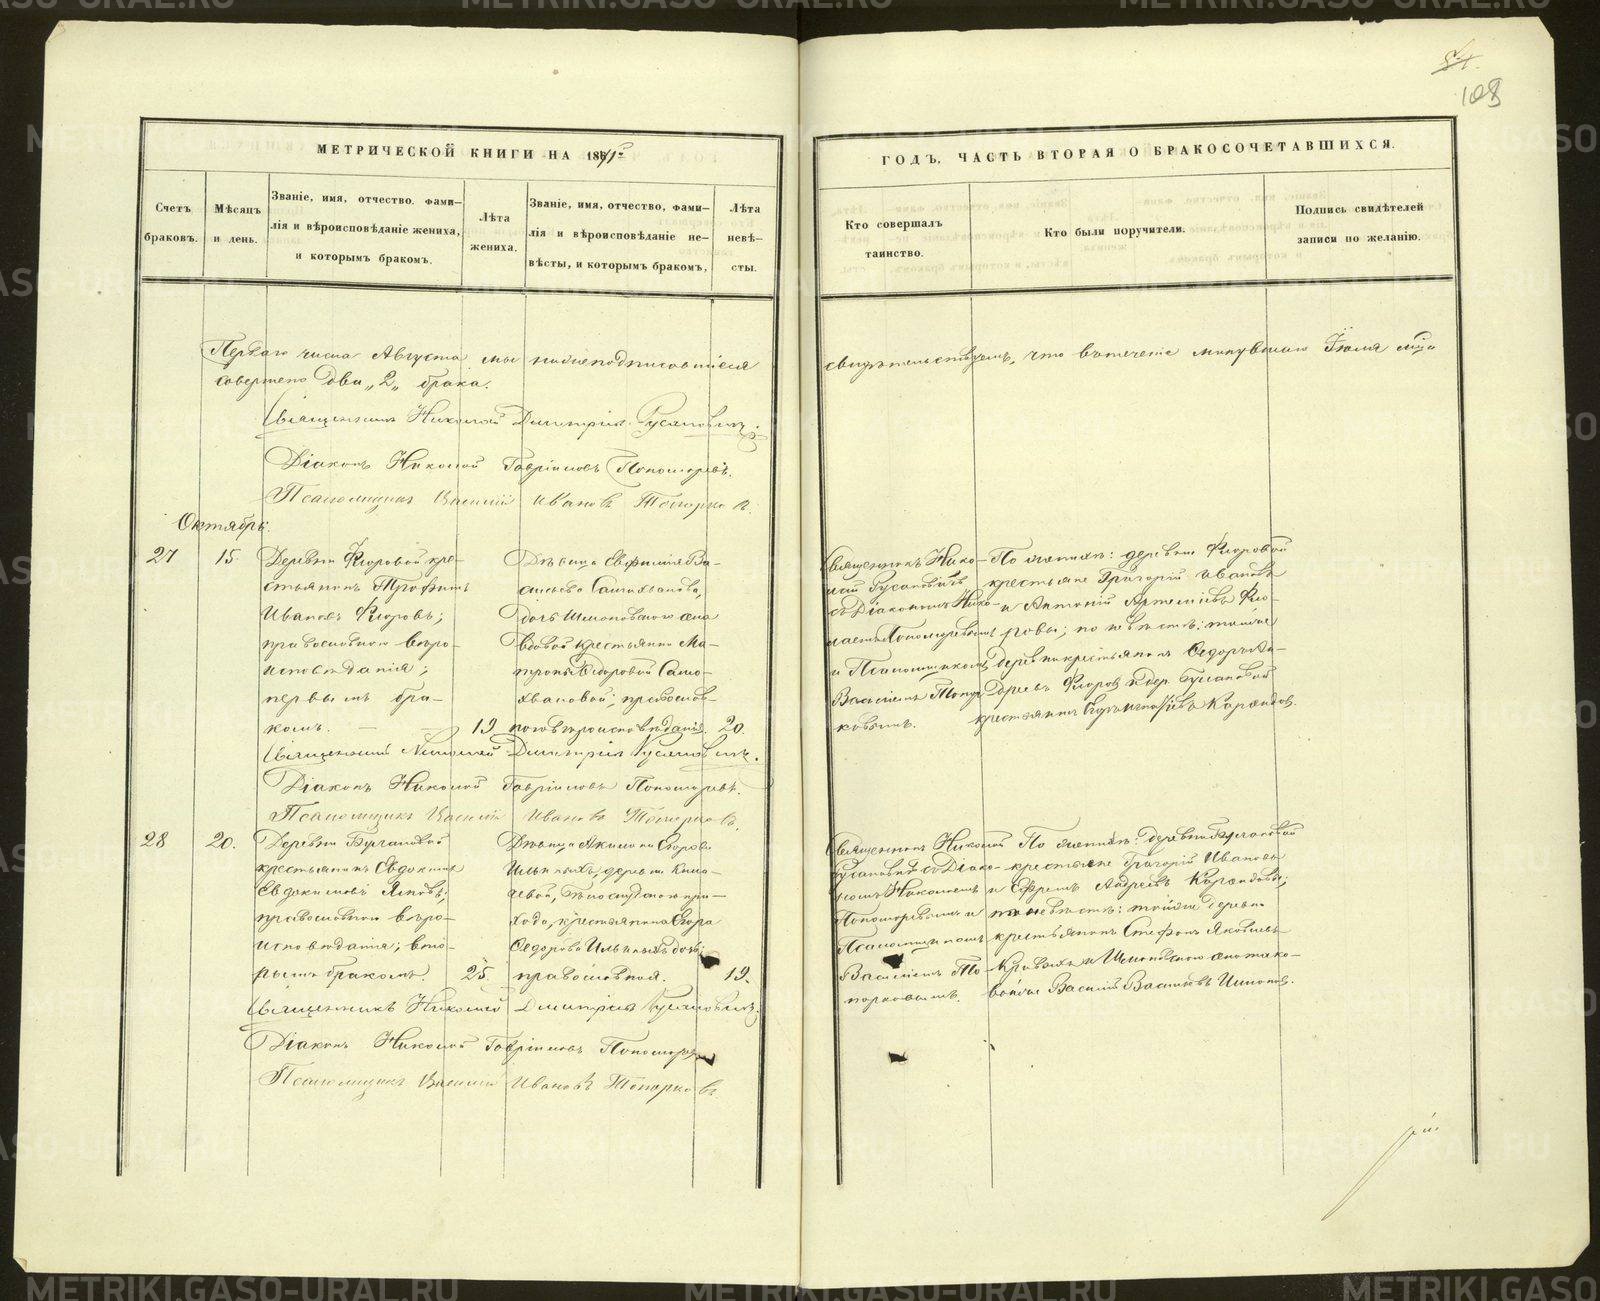 84.
108
МЕТРИЧЕСКОЙ КНИГИ НА 1871 г.
ГОДЪ, ЧАСТЬ ВТОРАЯ О БРАКОСОЧЕТАВШИХСЯ.
Счетъ браковъ.
Мѣсяцъ и день.
Званіе, имя, отчество, фами-
лія и вѣроисповѣданіе жениха,
и которымъ бракомъ.
Лѣта жениха.
Званіе, имя, отчество, фами-
лія и вѣроисповѣданіе не-
вѣсты, и которымъ бракомъ,
Лѣта невѣ-
сты.
Кто совершалъ
таинство.
Кто были поручители.
Подпись свидѣтелей
записи по желанію.
Перваго числа Августа мы нижеподписавшіеся
свидѣтельствуемъ, что въ теченіе минувшаго Іюля м-ца
совершено два „2„ брака.
Священникъ Николай Димитріевъ Русановичъ.
Діаконъ Николай Гавріиловъ Пономаревъ.
Псаломщикъ Василій Ивановъ Топорковъ.
Октябрь.
27
15.
Деревни Флоровой кре-
стьянинъ Трофимъ
Ивановъ Флоровъ;
православнаго вѣро-
исповѣданія;
первымъ бра-
комъ.
19
Дѣвица Евфимія Ва-
сильева Самохвалова,
дочь
вдовой крестьянки Ма-
троны Ѳедоровой Само-
хваловой; православ-
наго вѣроисповѣданія.
20.
Священникъ Нико-
лай Русановичъ
съ Діакономъ Нико-
лаемъ Пономаревымъ
и Псаломщикомъ
Василіемъ Топор-
ковымъ.
По женихѣ: деревни Флоровой
крестьяне Григорій Ивановъ
и Антоній Артеміевъ Фло-
ровы; по невѣстѣ: той же
деревни крестьянинъ Ѳедоръ
Флоровъ и дер.
крестьянинъ
Священникъ Николай Димитріевъ Русановичъ.
Діаконъ Николай Гавріиловъ Пономаревъ.
Псаломщикъ Василій Ивановъ Топорковъ.
28
20.
Деревни
крестьянинъ Евдокимъ
Евдокимовъ
православнаго вѣро-
исповѣданія; вто-
рымъ бракомъ
25.
Дѣвица Акилина Егорова
Ильиныхъ, деревни
при-
хода, крестьянина Егора
Ѳедорова Ильиныхъ дочь;
православная.
19.
Священникъ Николай
Русановичъ съ Діако-
номъ Николаемъ
Пономаревымъ и
Псаломщикомъ
Василіемъ То-
порковымъ.
По женихѣ: деревни
крестьяне Григорій Ивановъ
и Ефремъ Андреевъ
по невѣстѣ: той же деревни
крестьянинъ Стефанъ Яковлевъ
Василій Васильевъ
Священникъ Николай Димитріевъ Русановичъ.
Діаконъ Николай Гавріиловъ Пономаревъ
Псаломщикъ Василій Ивановъ Топорковъ
METRIKI.GASO-URAL.RU